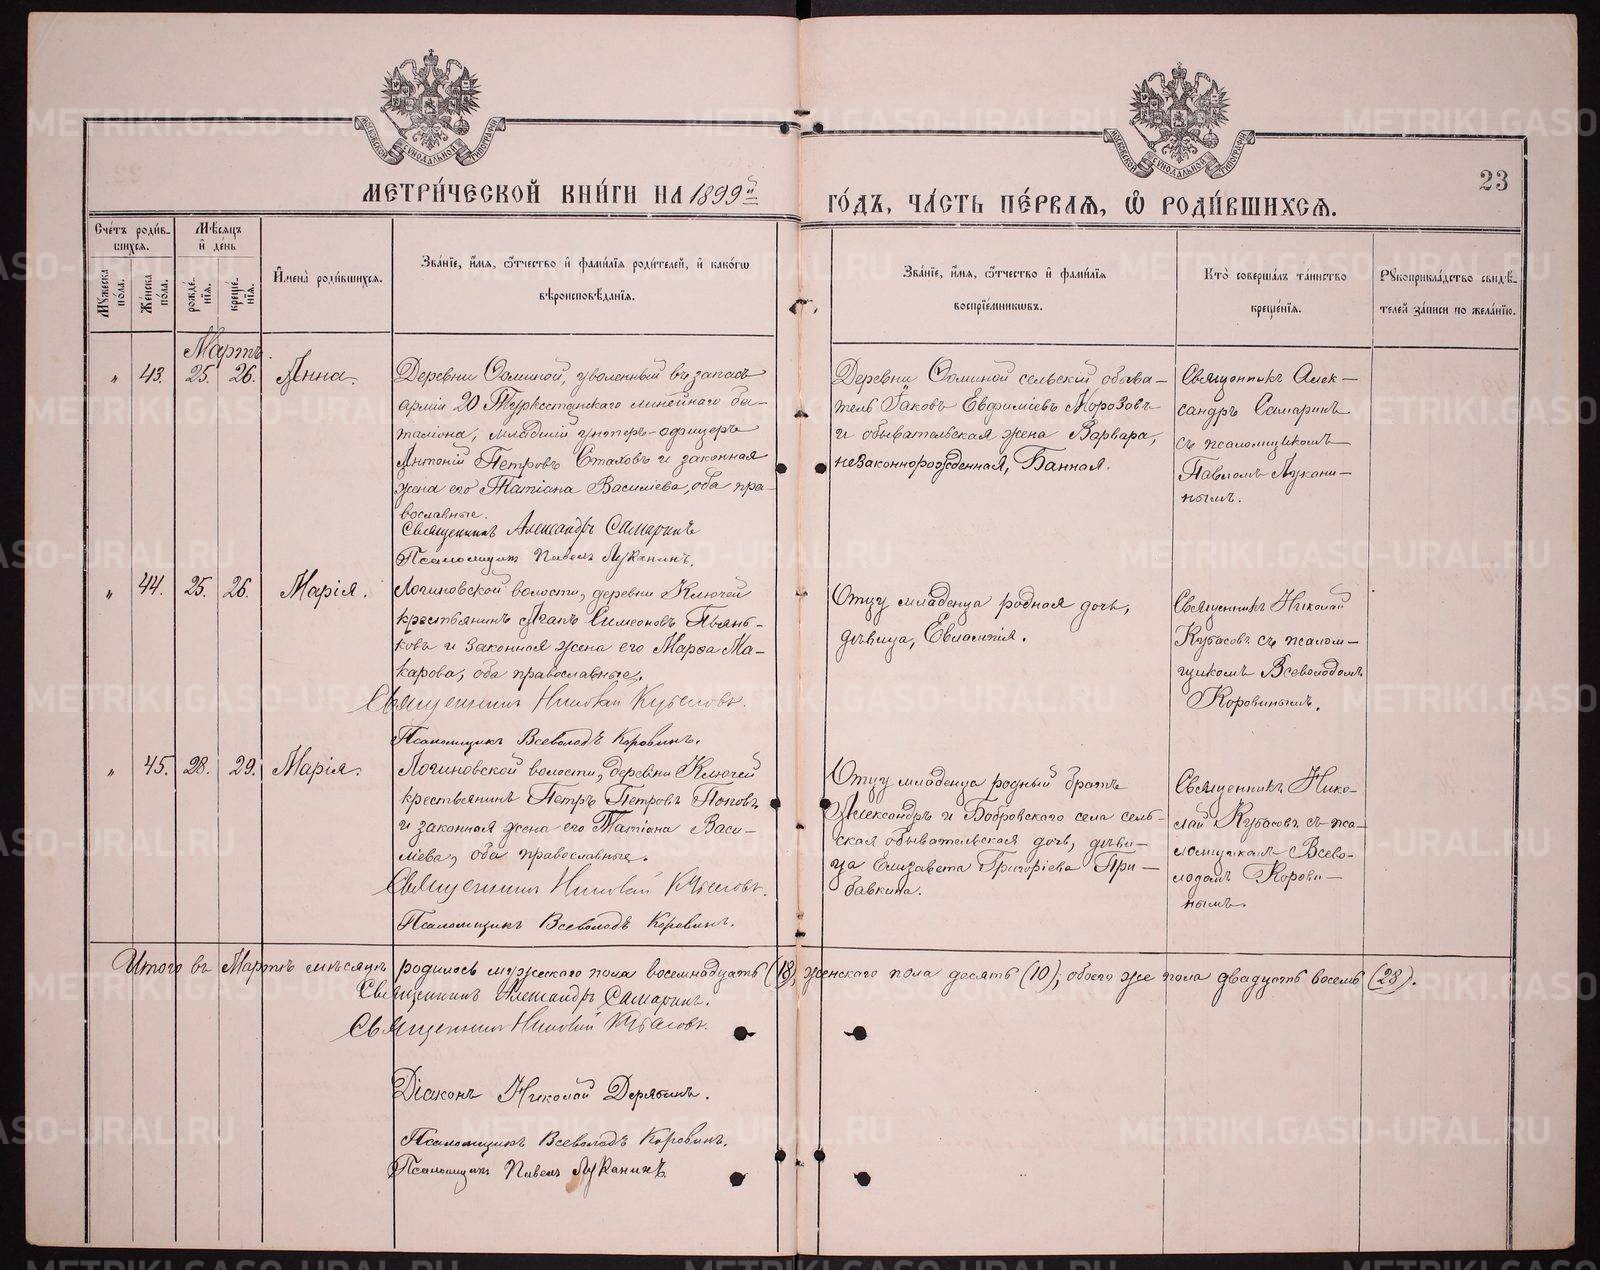 МОСКОВСКОЙ СѴНОДАЛЬНОЙ ТИПОГРАФІИ
МОСКОВСКОЙ СѴНОДАЛЬНОЙ ТИПОГРАФІИ
23
МЕТРИ́ЧЕСКОЙ КНИ́ГИ НА 1899й
ГО́ДЪ, ЧА́СТЬ ПЕ́РВАѦ, Ѽ РОДИ́ВШИХСѦ.
Сче́тъ роди́в-
шихсѧ.
Мꙋжеска по́ла.
Же́нска по́ла.
Мѣ́сѧцъ
и҆ де́нь
рожде́-
нїѧ.
креще́-
нїѧ.
И҆мена̀ роди́вшихсѧ.
Зва́нїе, и҆́мѧ, ѻ҆́тчество и҆ фами́лїѧ роди́телей, и҆ како́гѡ
вѣроисповѣ́данїѧ.
Зва́нїе, и҆́мѧ, ѻ҆́тчество и҆ фами́лїѧ
воспрїе́мниковъ.
Кто̀ соверша́лъ та́инство
креще́нїѧ.
Рꙋкоприкла́дство свидѣ́-
телей за́писи по жела́нїю.
Мартъ.
" 43. 25. 26. Анна.
Деревни Соминой, уволенный въ запасъ
арміи 20 Туркестанскаго линейнаго ба-
таліона, младшій унтеръ-офицеръ
Антоній Петровъ Стаховъ и законная
жена его Татіана Василіева, оба пра-
вославные.
Священникъ Александръ Самаринъ
Псаломщикъ Павелъ Луканинъ.
Деревни Соминой сельскій обыва-
тель Іаковъ Евфиміевъ Морозовъ
и обывательская жена Варвара,
незаконнорожденная, Банная.
Священникъ Алек-
сандръ Самаринъ
съ псаломщикомъ
Павломъ Лукани-
нымъ.
" 44. 25. 26. Марія.
Логиновской волости, деревни Ключей
крестьянинъ Симеоновъ Пьянь-
ковъ и законная жена его Марѳа Ма-
карова, оба православные.
Священникъ Николай Кубасовъ.
Псаломщикъ Всеволодъ Коровинъ.
Отцу младенца родная дочь,
дѣвица, Евлампія.
Священникъ Николай
Кубасовъ съ псалом-
щикомъ Всеволодомъ
Коровинымъ.
" 45. 28. 29. Марія.
Логиновской волости, деревни Ключей
крестьянинъ Петръ Петровъ Поповъ
и законная жена его Татіана Васи-
ліева, оба православные.
Священникъ Николай Кубасовъ.
Псаломщикъ Всеволодъ Коровинъ.
Отцу младенца родный братъ
Александръ и Бобровскаго села сель-
ская обывательская дочь, дѣви-
ца Елизавета Григоріева При-
бавкина.
Священникъ Нико-
лай Кубасовъ съ пса-
ломщикомъ Всево-
лодомъ Корови-
нымъ.
Итого въ Мартѣ мѣсяцѣ родилось мужескаго пола восемнадцать (18), женскаго пола десять (10), обоего же пола двадцать восемь (28).
Священникъ Александръ Самаринъ.
Священникъ Николай Кубасовъ.
Діаконъ Николай Дерябинъ.
Псаломщикъ Всеволодъ Коровинъ.
Псаломщикъ Павелъ Луканинъ
METRIKI.GASO-URAL.RU